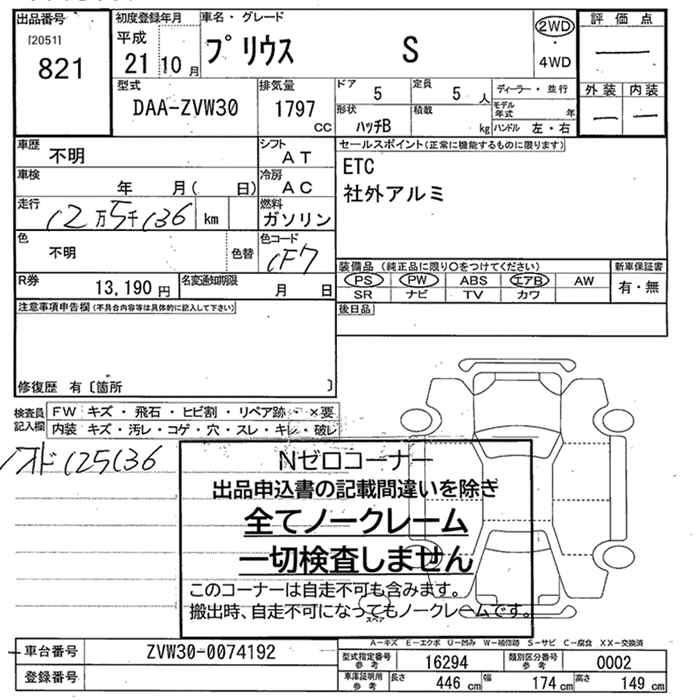 出品番号
[2051]
821
初度登録年月
平成
21 10 月
車名・グレード
プリウス S
2WD
・
4WD
評価点
外装 内装
型式
DAA-ZVW30
排気量
1797
CC
ドア 5
定員 5 人
形状
ハッチB
積載
kg
ディーラー・並行
モデル年式 年
ハンドル 左・右
車歴
不明
シフト
AT
車検
年 月( 日)
冷房
AC
走行
12万5千136 km
燃料
ガソリン
色
不明
色替
色コード
1F7
R券
13,190 円
名変通知期限
月 日
セールスポイント(正常に機能するものに限ります)
ETC
社外アルミ
装備品 (純正品に限り〇をつけてください)
新車保証書
PS PW ABS エアB AW
SR ナビ TV カワ
有・無
注意事項申告欄(不具合内容等は具体的に記入して下さい)
後日品
修復歴 有〔箇所 〕
検査員
記入欄
FW キズ・飛石・ヒビ割・リペア跡・×要
内装 キズ・汚レ・コゲ・穴・スレ・キレ・破レ
125136
Nゼロコーナー
出品申込書の記載間違いを除き
全てノークレーム
一切検査しません
このコーナーは自走不可も含みます。
搬出時、自走不可になってもノークレームです。
スペア
A-キズ E-エクボ U-凹み W-補修跡 S-サビ C-腐食 XX-交換済
車台番号
ZVW30-0074192
型式指定番号
参考
16294
類別区分番号
参考
0002
登録番号
車庫証明用
参考
長さ 446 cm 幅 174 cm 高さ 149 cm